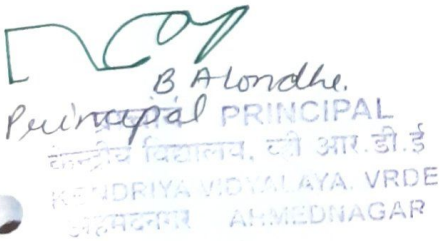 B A Londhe.
Principal PRINCIPAL
केन्द्रीय विद्यालय, व्ही आर.डी.ई
KENDRIYA VIDYALAYA. VRDE
अहमदनगर AHMEDNAGAR